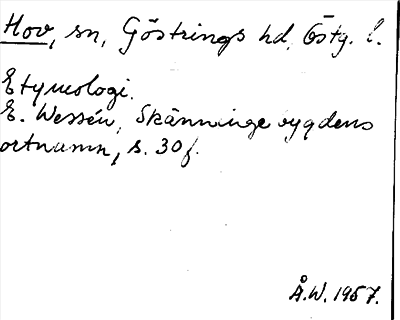 Hov, sn, Göstrings hd, Östg. l.
Etymologi.
E. Wessén, Skänninge bygdens
ortnamn, s. 30 f.
Å.W. 1957.